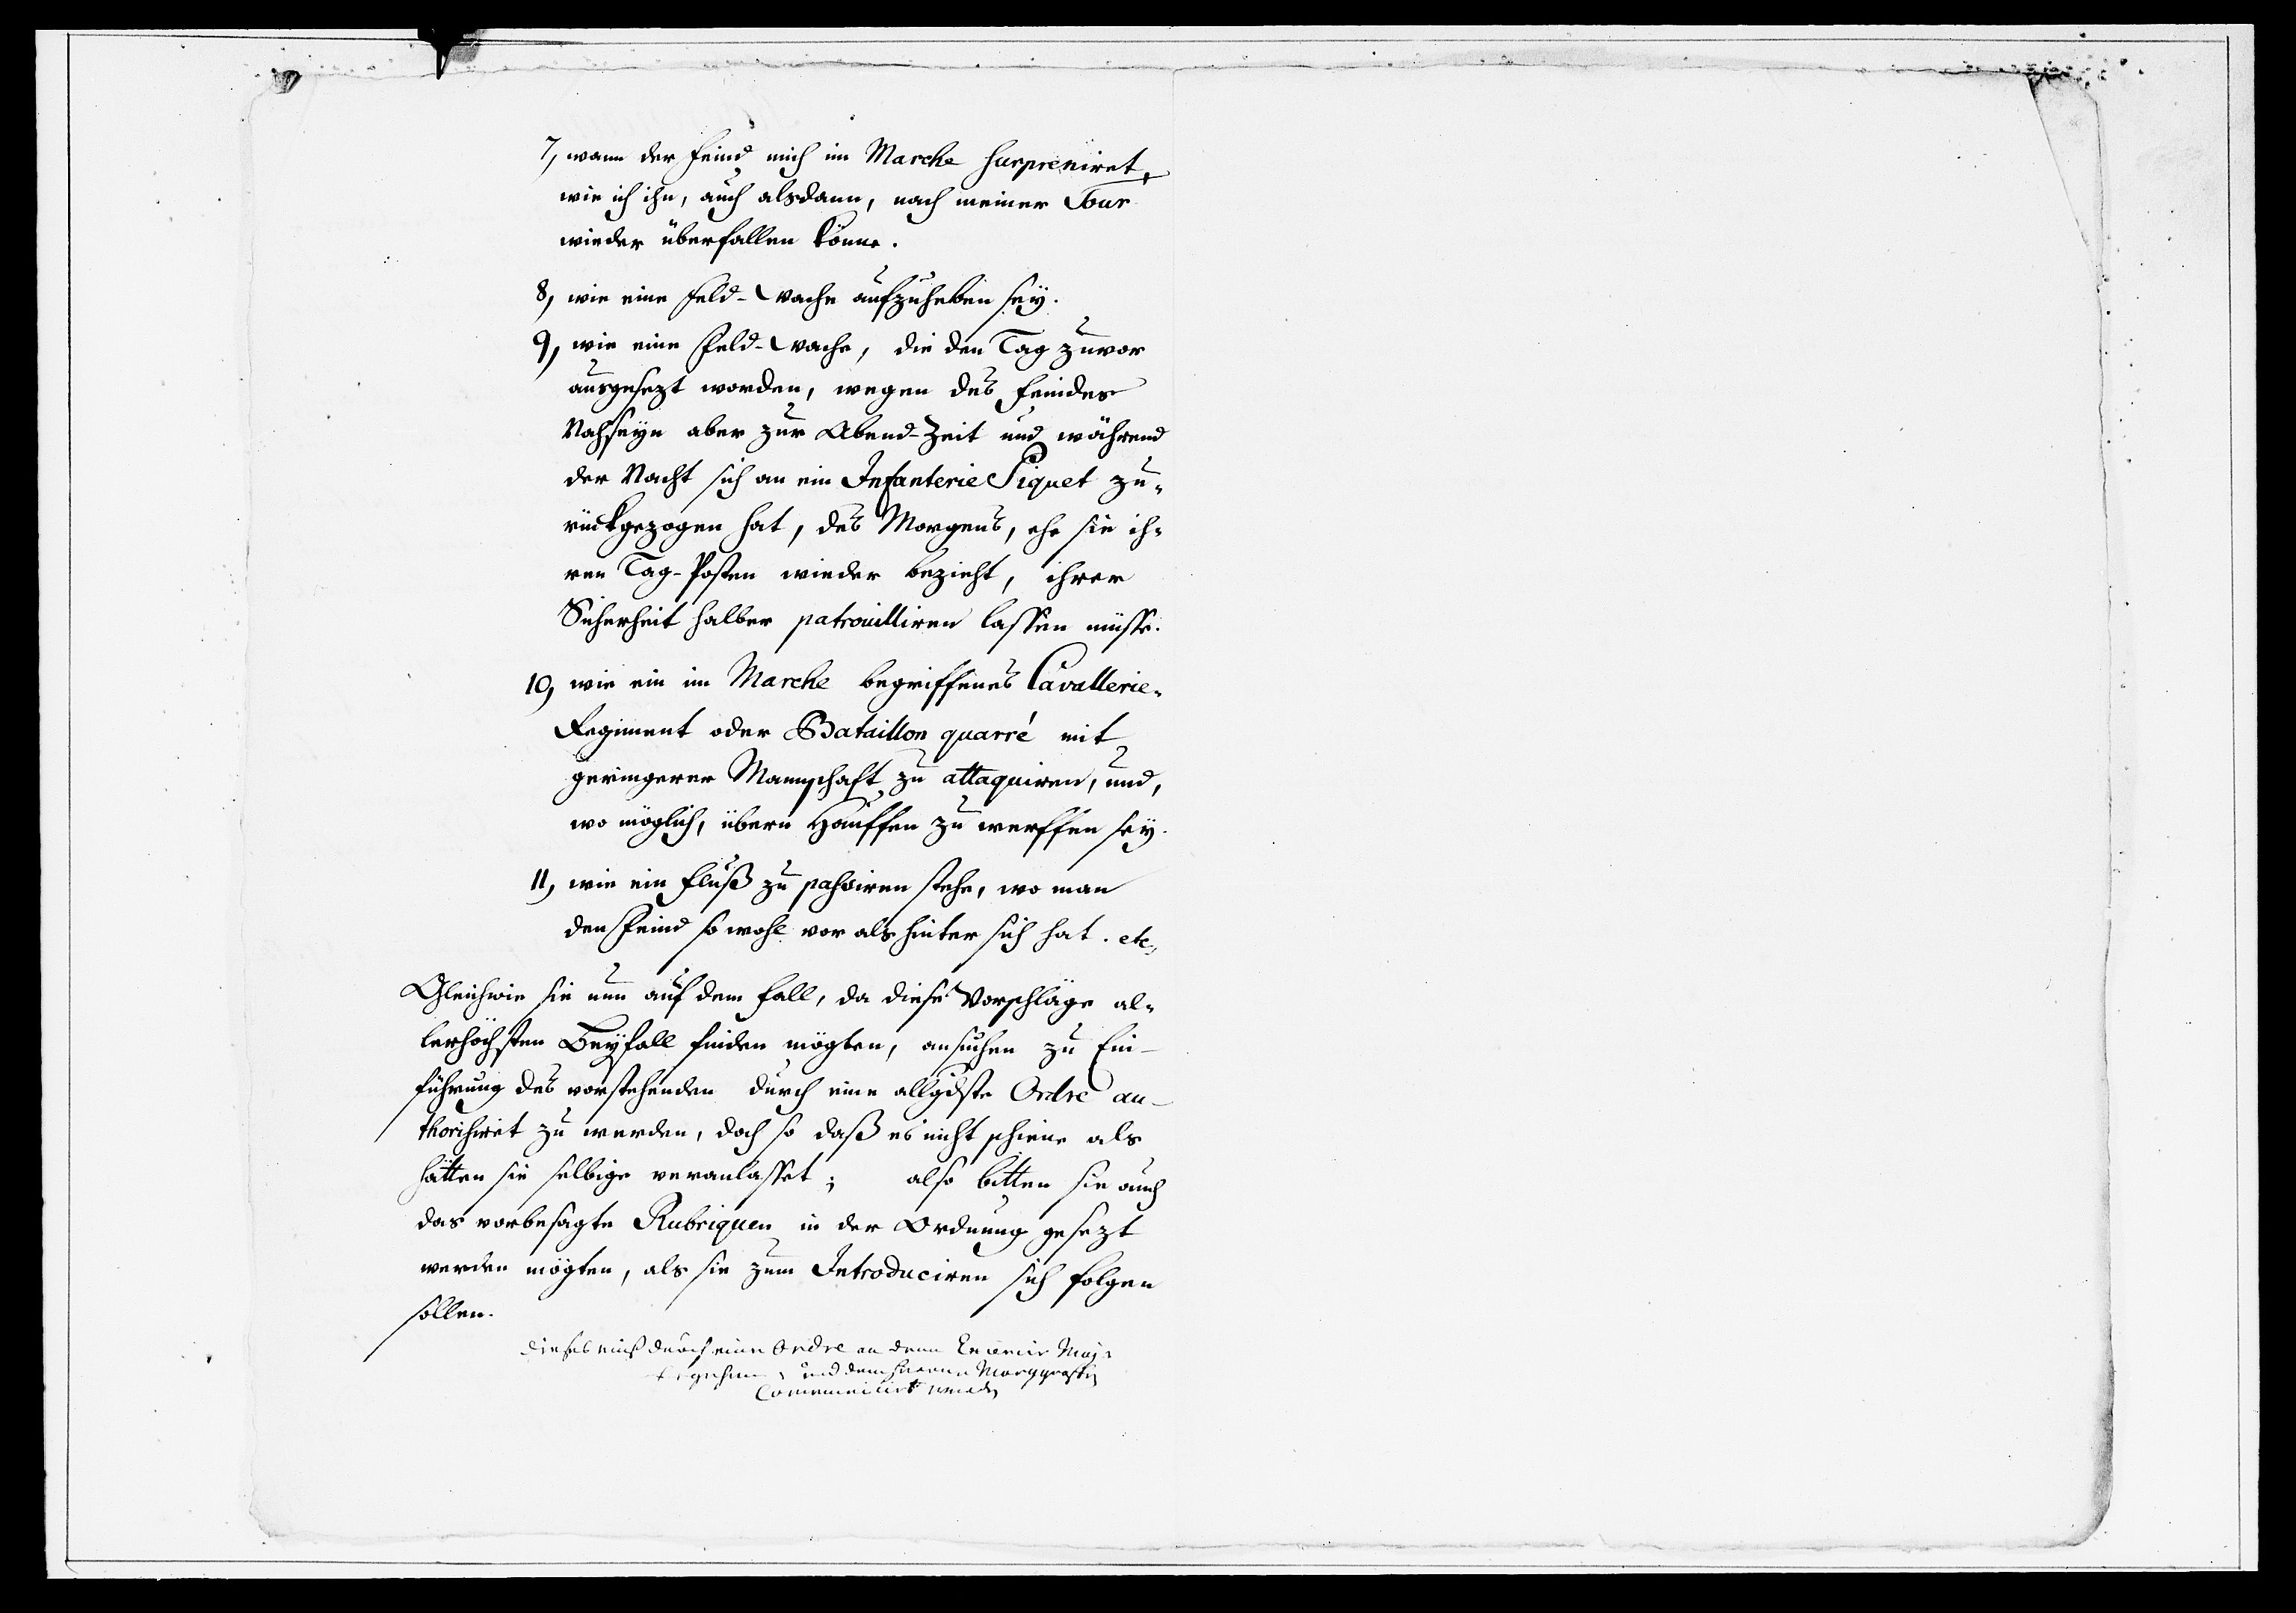 7, wann der Feind mich im Marche surpreniret,
wie ich ihn, auch alsdann, nach meiner Tour
wieder überfallen könne.
8, wie eine Feld-Wache aufzuheben sey.
9, wie eine Feld-Wache, die den Tag zuvor
ausgesezt worden, wegen des Feindes
Nahseyn aber zur Abend-Zeit und während
der Nacht sich an ein Infanterie Piquet zu-
rückgezogen hat, des Morgens, ehe sie ih-
ren Tag-Posten wieder bezieht, ihrer
Sicherheit halber patrouilliren lassen müsse.
10, wie ein im Marche begriffenes Cavallerie-
Regiment oder Bataillon quarré mit
geringerer Mannschaft zu attaquiren, und,
wo möglich, übern Hauffen zu werffen sey.
11, wie ein Fluß zu passiren stehe, wo man
den Feind so wohl vor als hinter sich hat. etc.
Gleichwie sie nun auf dem Fall, da diese Vorschläge al-
lerhöchsten Beyfall finden mögten, ansuchen zu Ein-
führung des vorstehenden durch eine allgdste Ordre au-
thorisiret zu werden, doch so daß es nicht schiene als
hätten sie selbige veranlasset; also bitten sie auch
das vorbesagte Rubriquen in der Ordnung gesezt
werden mögten, als sie zum Introduciren sich folgen
sollen.
dieses muß durch eine Ordre an denn Maj:
und dem Herrn Marggrafen
Communicirt werden